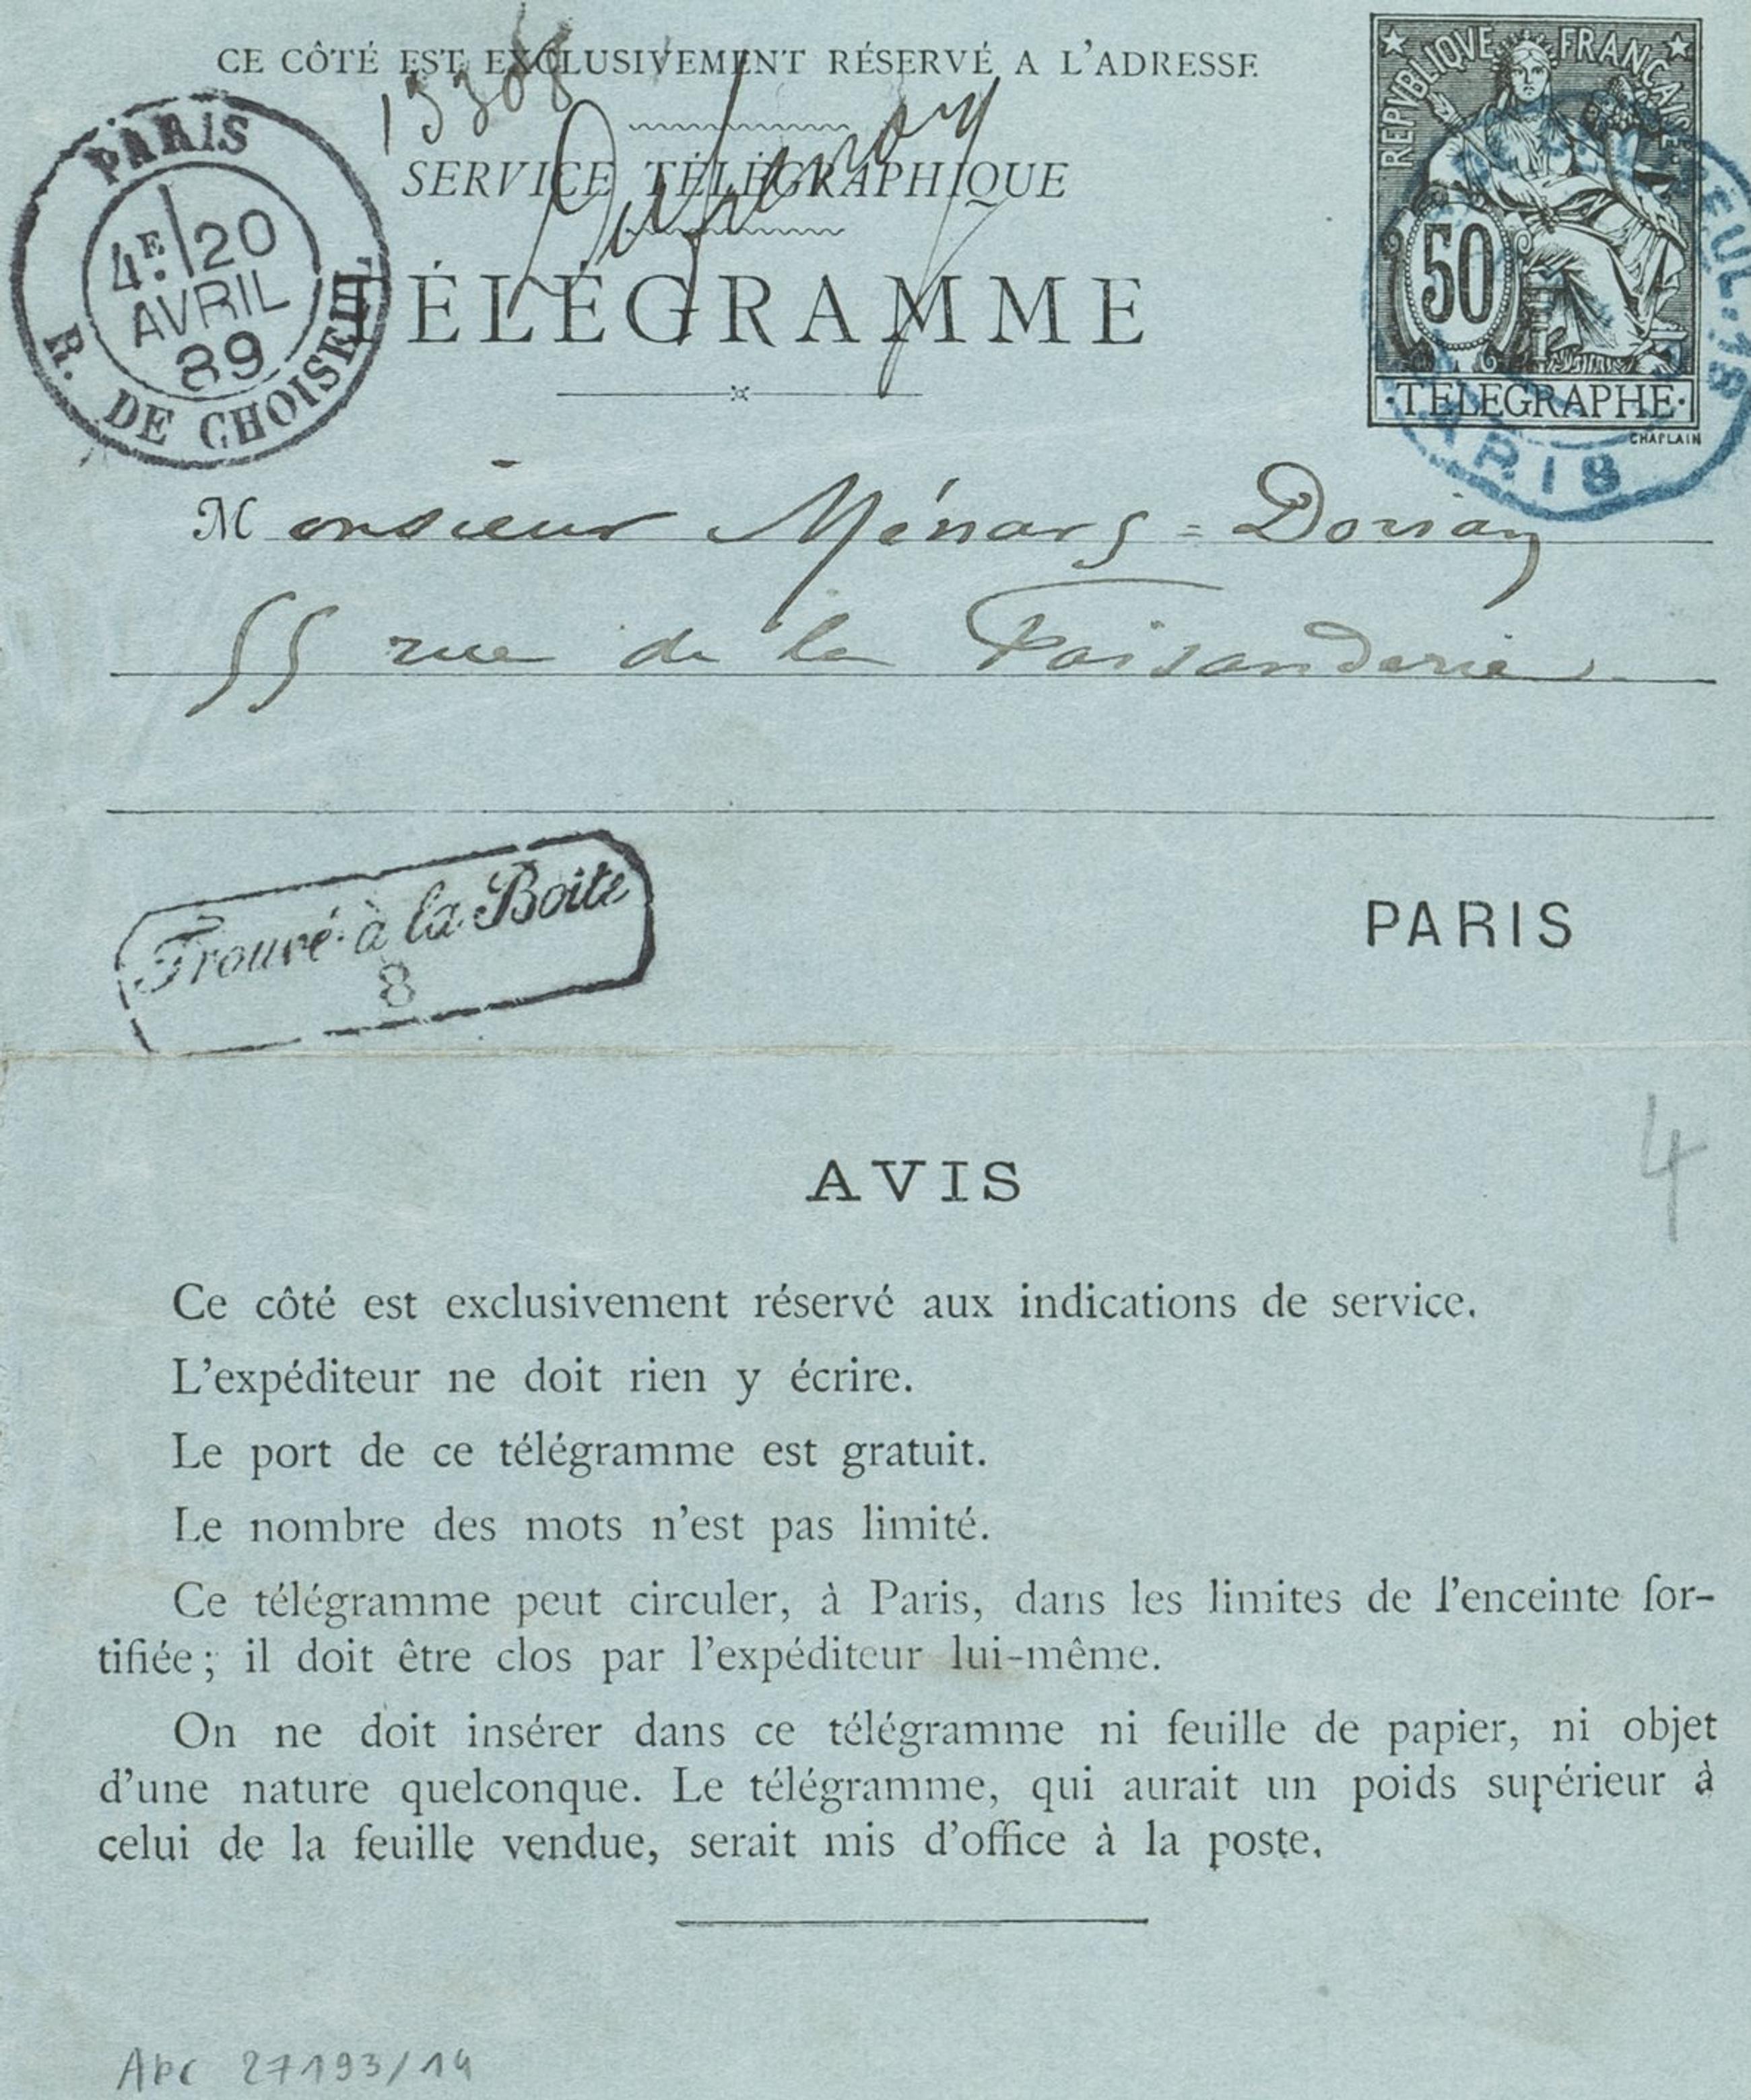 CE CÔTÉ EST EXCLUSIVEMENT RÉSERVÉ A L'ADRESSE
SERVICE TÉLÉGRAPHIQUE
TÉLÉGRAMME
PARIS
4E 20
AVRIL
89
R. DE CHOISEUL
REPVBLIQVE FRANÇAISE
50
TELEGRAPHE
CHAPLAIN
PARIS
Monsieur Ménard=Dorian
55 rue de la Faisanderie.
Trouvé à la Boite
8
PARIS
4
AVIS
Ce côté est exclusivement réservé aux indications de service.
L'expéditeur ne doit rien y écrire.
Le port de ce télégramme est gratuit.
Le nombre des mots n'est pas limité.
Ce télégramme peut circuler, à Paris, dans les limites de l'enceinte for-
tifiée; il doit être clos par l'expéditeur lui-même.
On ne doit insérer dans ce télégramme ni feuille de papier, ni objet
d'une nature quelconque. Le télégramme, qui aurait un poids supérieur à
celui de la feuille vendue, serait mis d'office à la poste.
Apc 27193/14